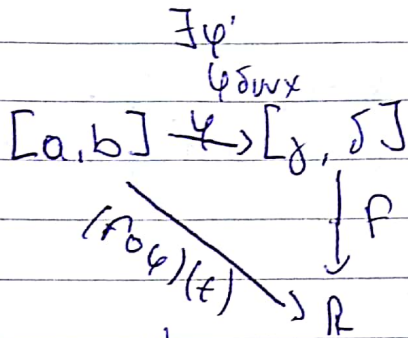 ∃φ'
φ συνχ
[a,b] φ→ [γ, δ]
(f∘φ)(t)
f
R